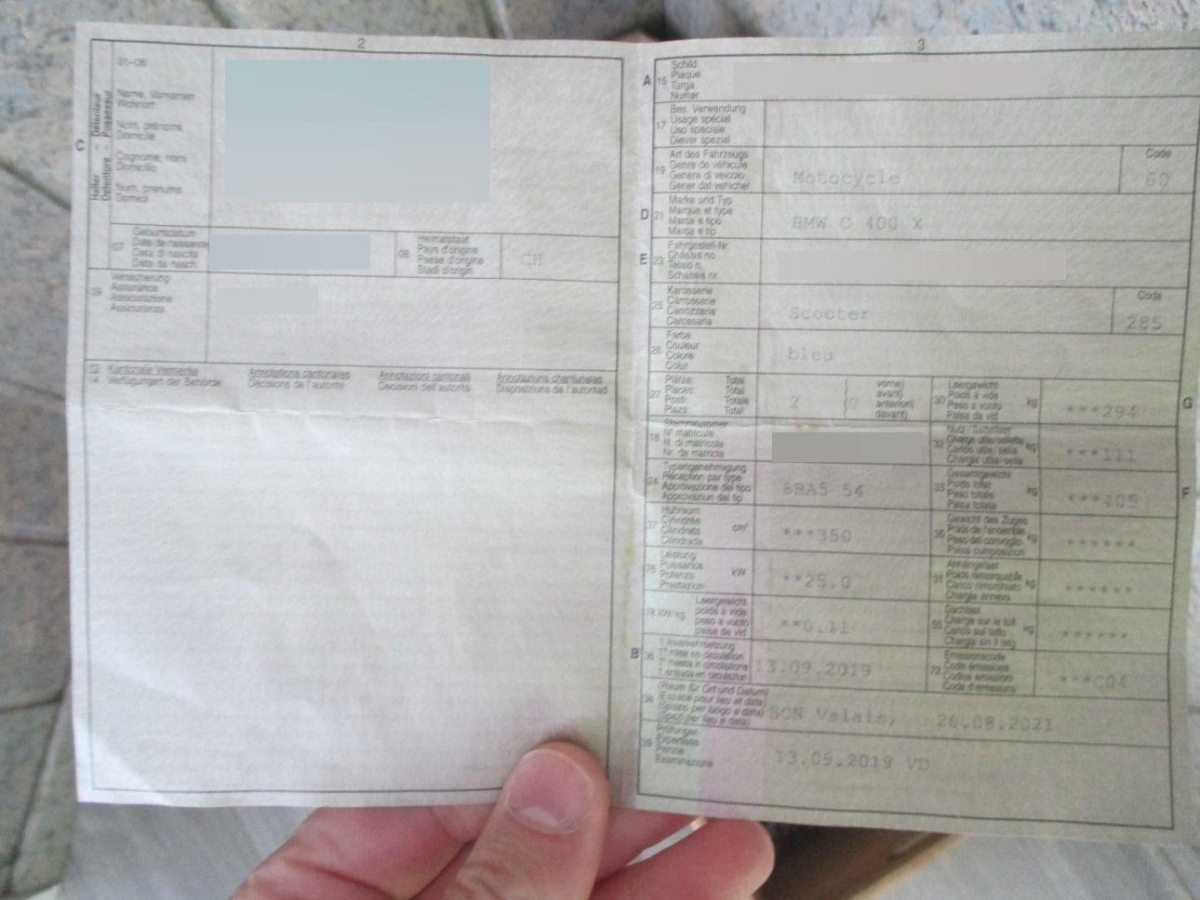 2
C
Halter - Détenteur
Detentore - Possessur
01-06
Name, Vornamen
Wohnort
Nom, prénoms
Domicile
Cognome, nomi
Domicilio
Num, prenums
Domicil
07
Geburtsdatum
Date de naissance
Data di nascita
Data da nasch.
08
Heimatstaat
Pays d'origine
Paese d'origine
Stadi d'origin
CH
09
Versicherung
Assurance
Assicurazione
Assicuranza
13
14
Kantonale Vermerke
Verfügungen der Behörde
Annotations cantonales
Décisions de l'autorité
Annotazioni cantonali
Decisioni dell'autorità
Annotaziuns chantunalas
Disposiziuns de l'autoritad
3
A
15
Schild
Plaque
Targa
Numer
17
Bes. Verwendung
Usage spécial
Uso speciale
Diever spezial
19
Art des Fahrzeugs
Genre de véhicule
Genere di veicolo
Gener dal vehichel
Motocycle
Code
60
D
21
Marke und Typ
Marque et type
Marca e tipo
Marca e tip
BMW C 400 X
E
23
Fahrgestell-Nr.
Châssis no
Telaio n.
Schassis nr.
25
Karosserie
Carrosserie
Carrozzeria
Carossaria
Scooter
Code
285
26
Farbe
Couleur
Colore
Colur
bleu
27
Plätze: Total
Places: Total
Posti: Totale
Plazs: Total
2
0
vorne)
avant)
anteriori)
davant)
30
Leergewicht
Poids à vide
Peso a vuoto
Paisa da vid
kg
***294
G
18
Stammnummer
N° matricule
N. di matricola
Nr. da matricla
32
kg
***111
24
Typengenehmigung
Réception par type
Approvazione del tipo
Approvaziun dal tip
6BA5 54
33
Gesamtgewicht
Poids total
Peso totale
Paisa totala
kg
***405
F
37
Hubraum
Cylindrée
Cilindrata
Cilindrada
cm³
***350
35
Gewicht des Zuges
Poids de l'ensemble
Peso del convoglio
Paisa cumposiziun
kg
******
76
Leistung
Puissance
Potenza
Prestaziun
kW
**25.0
31
Anhängelast
Poids remorquable
Carico rimorchiato
Chargia annexa
kg
******
78
kW/kg
Leergewicht
poids à vide
peso a vuoto
paisa da vid
**0.11
55
Dachlast
Charge sur le toit
Carico sul tetto
Chargia sin il tetg
kg
******
B
36
1. Inverkehrsetzung
1re mise en circulation
1a messa in circolazione
1. entrada en circulaziun
13.09.2019
72
Emissionscode
Code émissions
Codice emissioni
Code d'emissiuns
***C04
38
(Raum für Ort und Datum)
(Espace pour lieu et date)
(Spazio per luogo e data)
(Spazi per lieu e data)
SCN Valais, 26.08.2021
39
Prüfungen
Expertises
Perizie
Examinaziuns
13.09.2019 VD